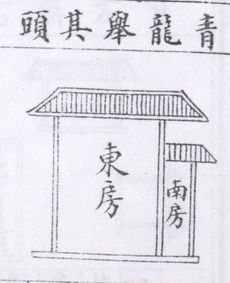 青龍舉其頭
東房
南房